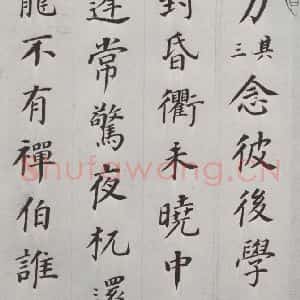 其三 念彼後學
昏衢未曉中
常驚夜杌還
不有禪伯誰
shufawang.CN